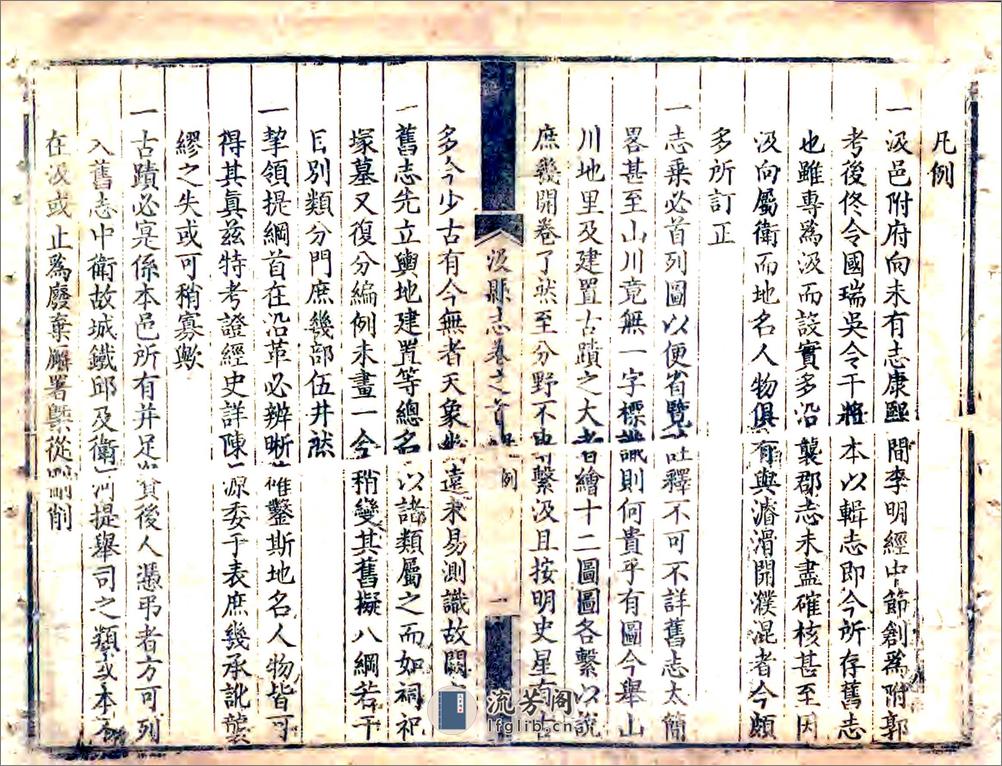 凡例
一汲邑附府向未有志康熙間李明經中節創爲附郭
考後佟令國瑞吳令干將本以輯志即今所存舊志
也雖專爲汲而設實多沿襲郡志未盡確核甚至因
汲向屬衛而地名人物俱有與濬滑開濮混者今頗
多所訂正
一志乘必首列圖以便省覽註釋不可不詳舊志太簡
畧甚至山川竟無一字標識則何貴乎有圖今舉山
川地里及建置古蹟之大者繪十二圖圖各繫以說
庶幾開卷了然至分野不繫汲且按明史星
汲縣志卷之 例 一
多今少古有今無者天象遠未易測識故闕
一舊志先立輿地建置等總名以諸類屬之而如祠祀
塚墓又復分編例未畫一今稍變其舊擬八綱若干
目別類分門庶幾部伍井然
一挈領提綱首在沿革必辨晰精鑿斯地名人物皆可
得其眞茲特考證經史詳陳源委于表庶幾承訛襲
繆之失或可稍寡歟
一古蹟必寔係本邑所有并足資後人憑弔者方可列
入舊志中衛故城鐵邱及衛河提舉司之類或本不
在汲或止爲廢棄廨署槩從刪削
流芳閣
lfglib.cn